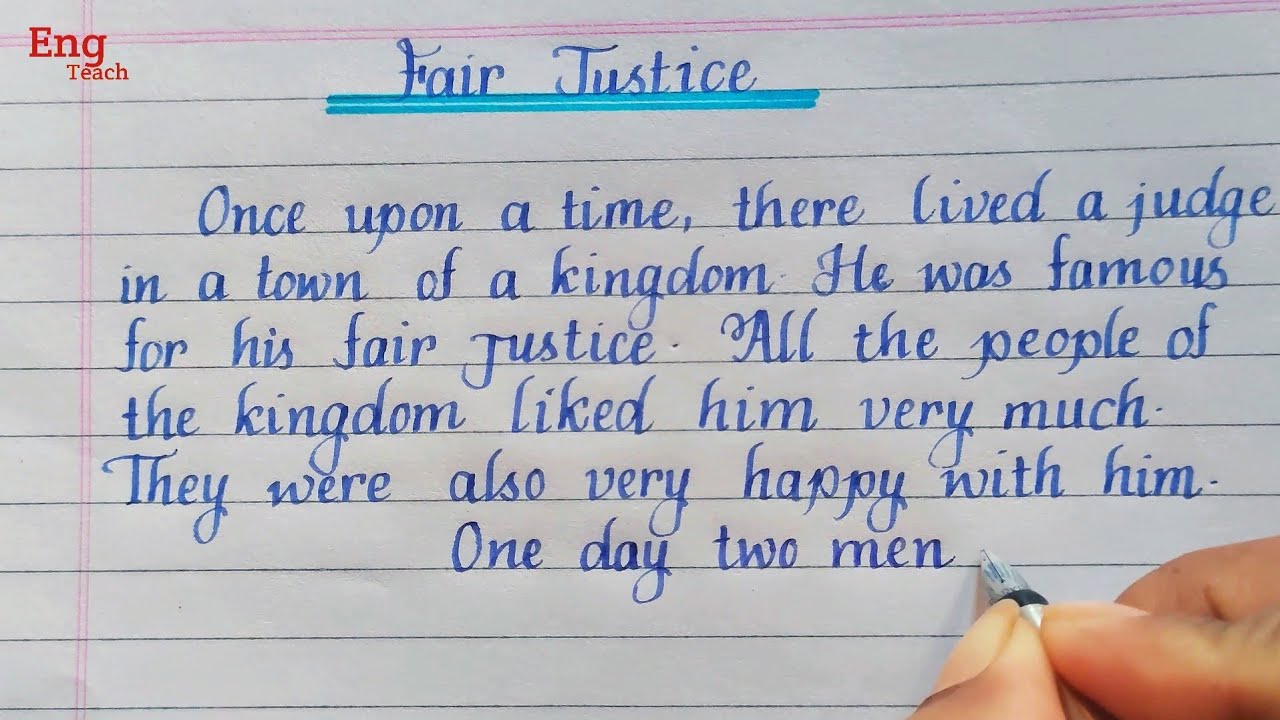 Eng
Teach
Fair Justice
Once upon a time, there lived a judge
in a town of a kingdom. He was famous
for his fair justice. All the people of
the kingdom liked him very much.
They were also very happy with him.
One day two men